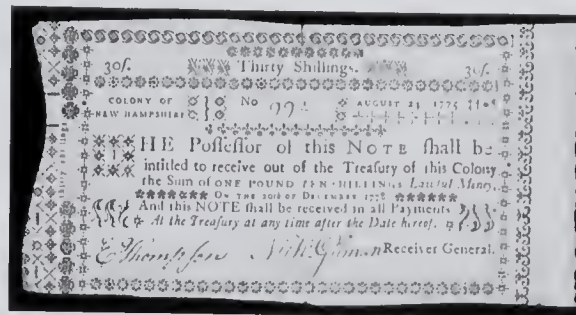 30ſ. Thirty Shillings. 30ſ.
COLONY OF NEW HAMPSHIRE No AUGUST 1775
THE Poſſeſſor of this NOTE ſhall be
intitled to receive out of the Treaſury of this Colony
the Sum of ONE POUND TEN-SHILLINGS Lawful Money,
ON THE 20th OF DECEMBER 1778
And this NOTE ſhall be received in all Payments
At the Treaſury at any time after the Date hereof.
E Thompson Nich: Gilman Receiver General.
thirty shillings